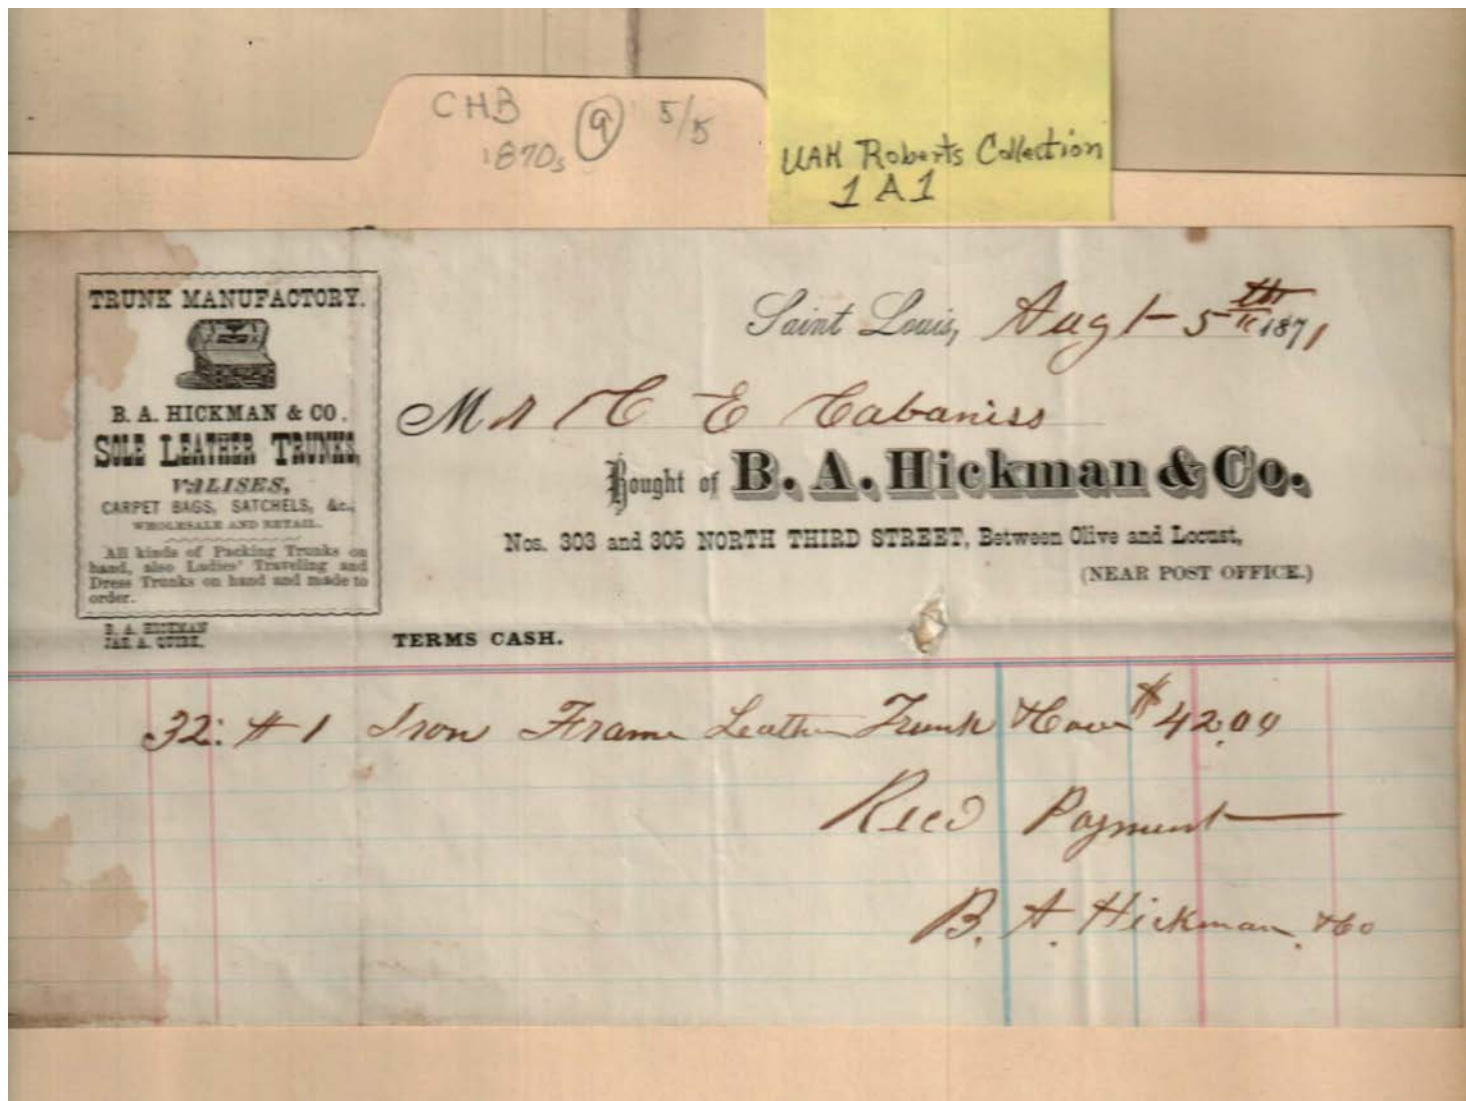 CHB 9 5/5
1870s
UAH Roberts Collection
1A1
TRUNK MANUFACTORY.
B. A. HICKMAN & CO.
SOLE LEATHER TRUNKS,
VALISES,
CARPET BAGS, SATCHELS, &c.,
WHOLESALE AND RETAIL.
All kinds of Packing Trunks on
hand, also Ladies' Traveling and
Dress Trunks on hand and made to
order.
B. A. HICKMAN
JAS. A. QUIRK.
Saint Louis, Augt 5th 1871
Mr C E Cabaniss
Bought of B. A. Hickman & Co.
Nos. 303 and 305 NORTH THIRD STREET, Between Olive and Locust,
(NEAR POST OFFICE.)
TERMS CASH.
32: # 1 Iron Frame Leather Trunk $42.00
Recd Payment
B. A. Hickman & Co